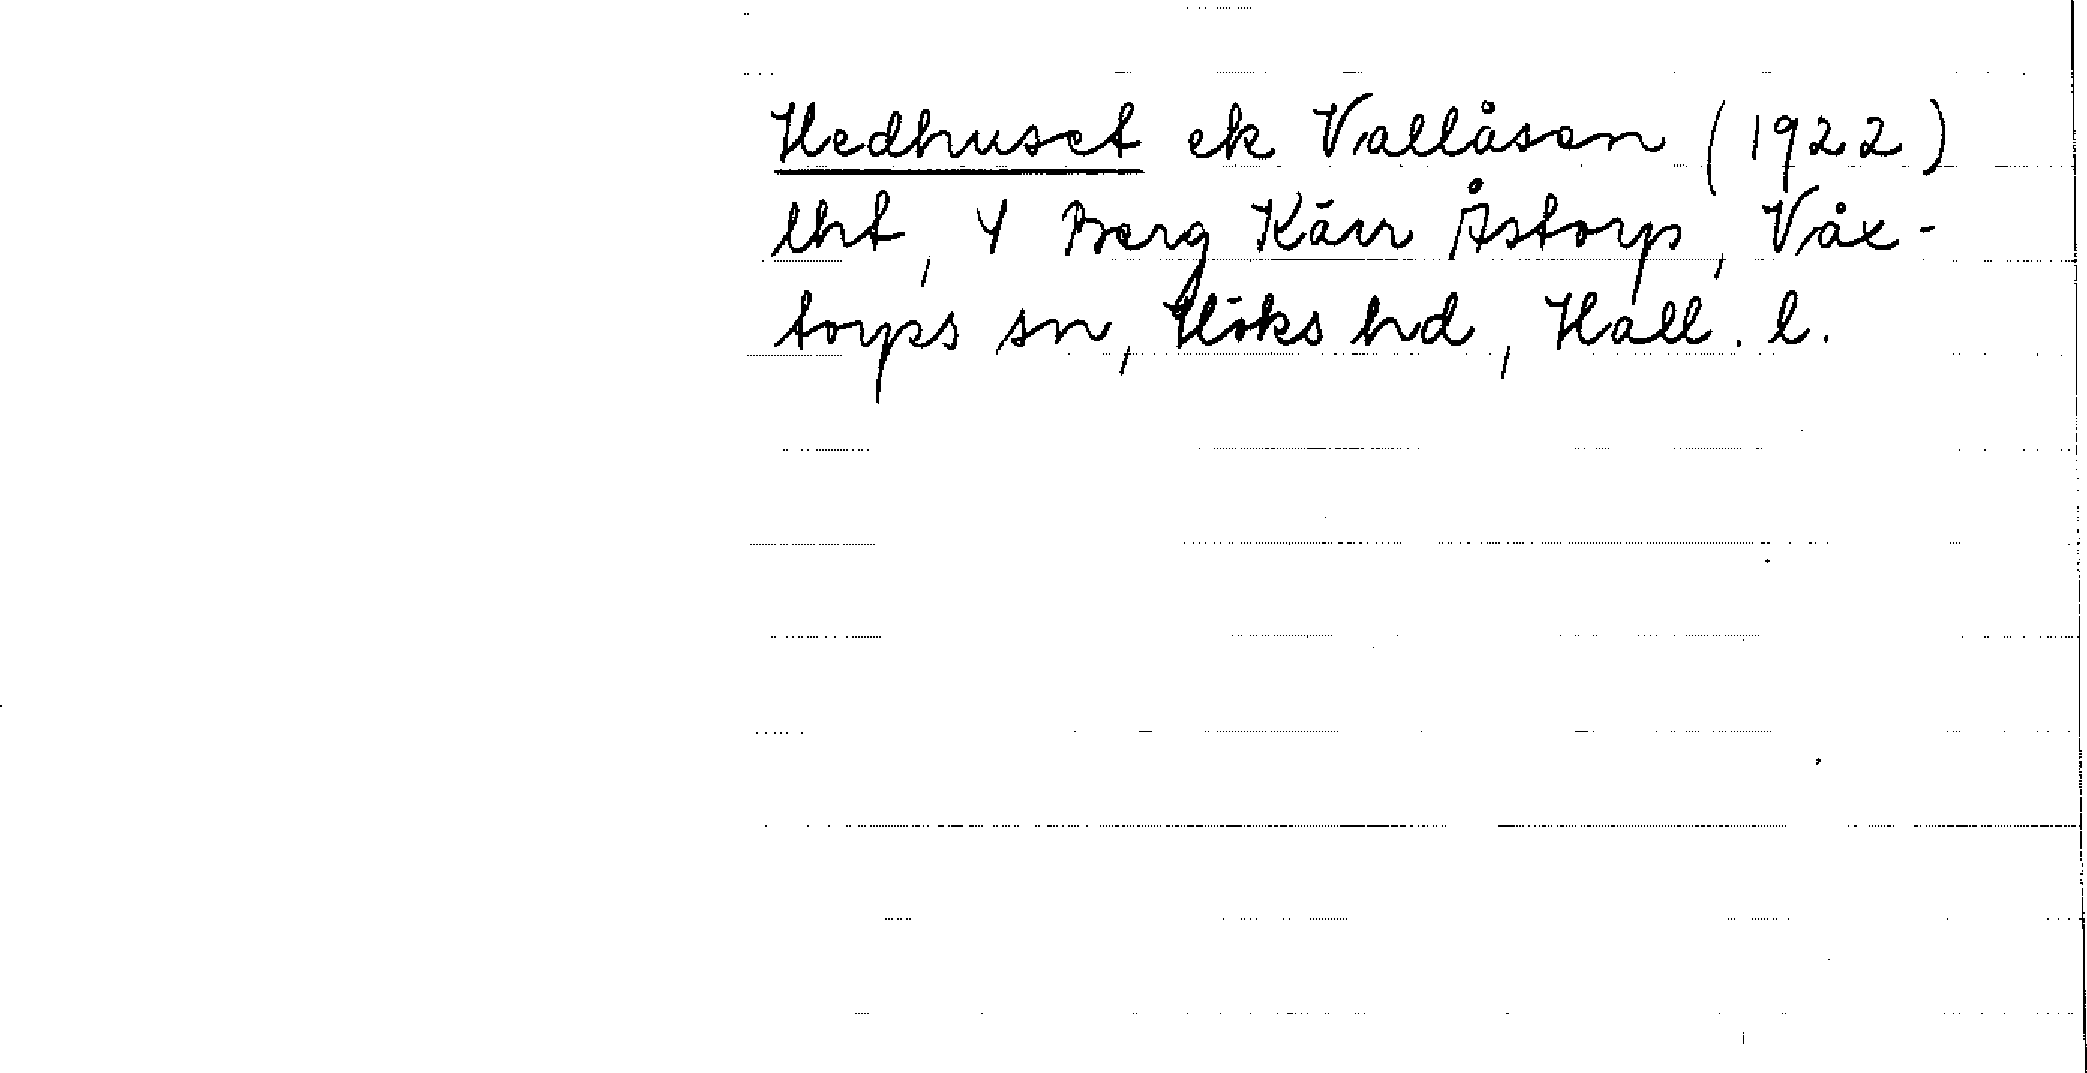 Hedhuset ek Vallåsen (1922)
lht, Y Berg Kärr Åstorp, Våx-
torps sn, Höks hd, Hall. l.